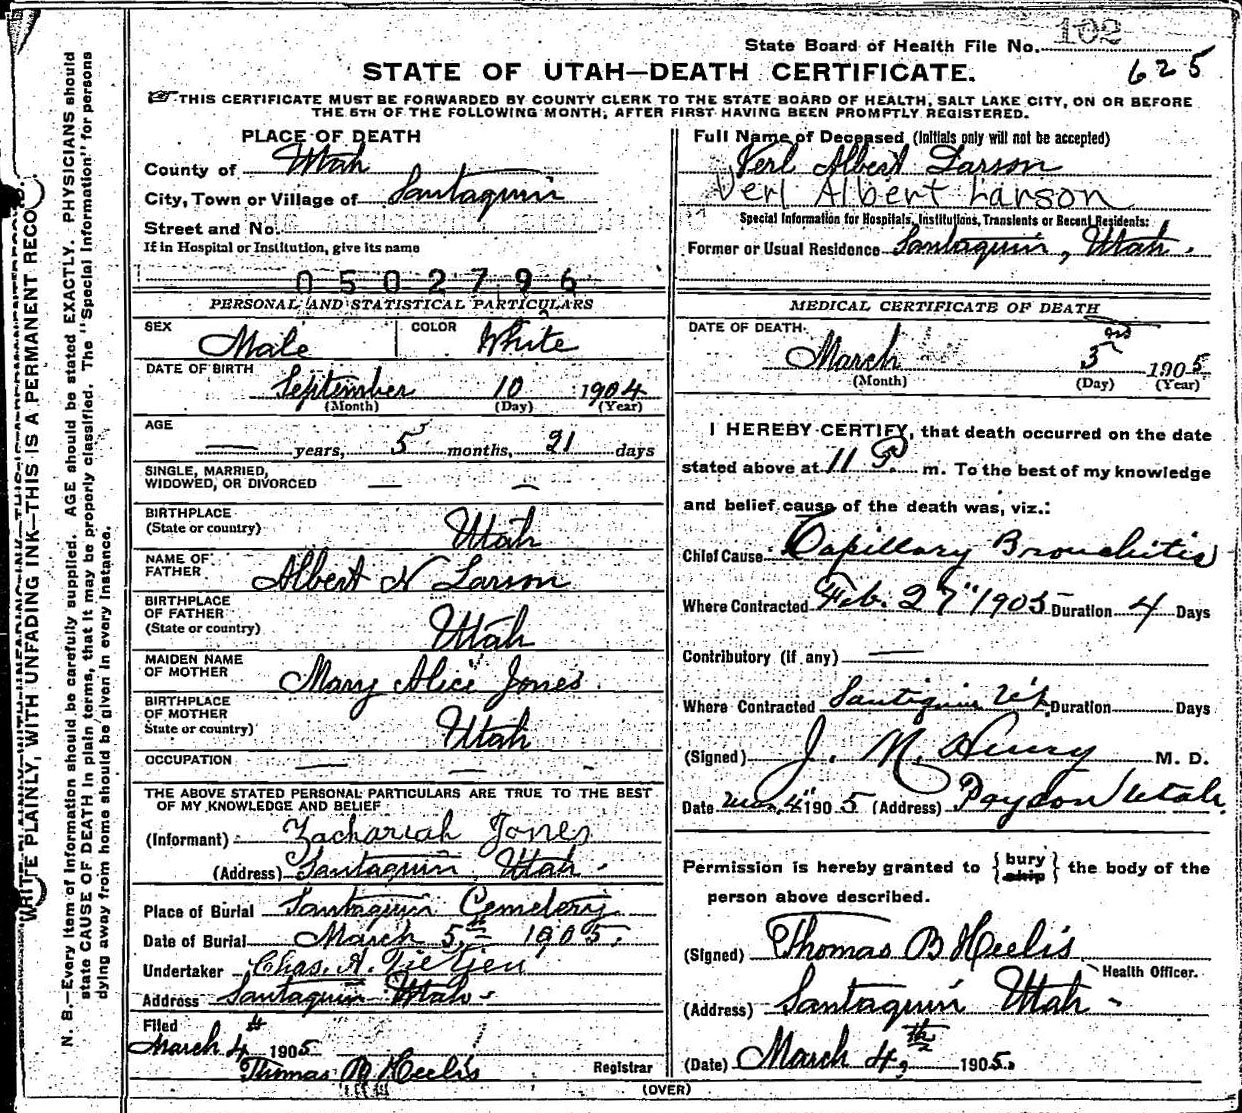 State Board of Health File No. 102
625
STATE OF UTAH—DEATH CERTIFICATE.
THIS CERTIFICATE MUST BE FORWARDED BY COUNTY CLERK TO THE STATE BOARD OF HEALTH, SALT LAKE CITY, ON OR BEFORE
THE 5TH OF THE FOLLOWING MONTH, AFTER FIRST HAVING BEEN PROMPTLY REGISTERED.
PLACE OF DEATH
County of Utah
City, Town or Village of Santaquin
Street and No.
If in Hospital or Institution, give its name
0502796
PERSONAL AND STATISTICAL PARTICULARS
SEX Male COLOR White
DATE OF BIRTH
September 10 1904
(Month) (Day) (Year)
AGE
— years, 5 months, 21 days
SINGLE, MARRIED,
WIDOWED, OR DIVORCED — —
BIRTHPLACE
(State or country) Utah
NAME OF
FATHER Albert N Larson
BIRTHPLACE
OF FATHER
(State or country) Utah
MAIDEN NAME
OF MOTHER Mary Alice Jones
BIRTHPLACE
OF MOTHER
State or country) Utah
OCCUPATION — — —
THE ABOVE STATED PERSONAL PARTICULARS ARE TRUE TO THE BEST
OF MY KNOWLEDGE AND BELIEF
(Informant) Zachariah Jones
(Address) Santaquin, Utah.
Place of Burial Santaquin Cemetery
Date of Burial March 5th 1905.
Undertaker Chas. A. Tietjen
Address Santaquin Utah.
Filed
March 4 1905
Thomas B Heelis Registrar
(OVER)
Full Name of Deceased (Initials only will not be accepted)
Verl Albert Larson
Verl Albert Larson
Special Information for Hospitals, Institutions, Transients or Recent Residents:
Former or Usual Residence Santaquin, Utah.
MEDICAL CERTIFICATE OF DEATH
DATE OF DEATH
March 3rd 1905
(Month) (Day) (Year)
I HEREBY CERTIFY, that death occurred on the date
stated above at 11 P. m. To the best of my knowledge
and belief cause of the death was, viz.:
Chief Cause Capillary Bronchitis
Where Contracted Feb. 27" 1905 Duration 4 Days
Contributory (if any) —
Where Contracted Santiquin Duration Days
(Signed) J. M. Henry M. D.
Date Mar. 4" 1905 (Address) Payson Utah.
Permission is hereby granted to { bury ship } the body of the
person above described.
(Signed) Thomas B Heelis
Health Officer.
(Address) Santaquin Utah
(Date) March 4th 1905.
WRITE PLAINLY, WITH UNFADING INK—THIS IS A PERMANENT RECO
N. B.—Every item of information should be carefully supplied. AGE should be stated EXACTLY. PHYSICIANS should
state CAUSE OF DEATH in plain terms, that it may be properly classified. The "Special Information" for persons
dying away from home should be given in every instance.